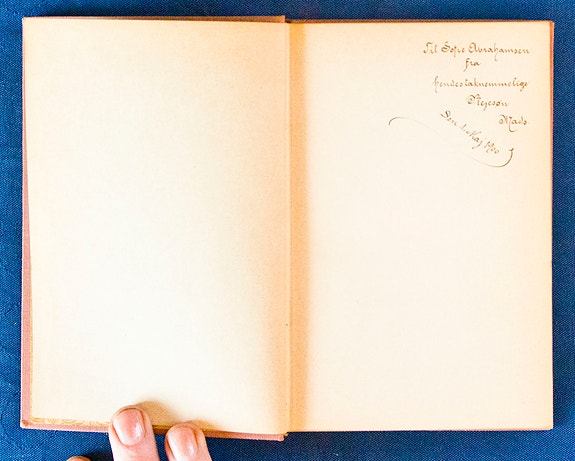 Til Sofie Abrahamsen
fra
hendes taknemmelige
Plejesøn
Mads
Den 1 Maj 1900